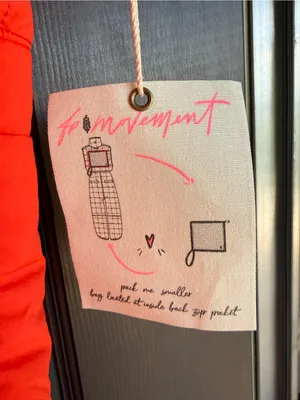 fp movement
pack me smaller
bag located at inside back zipr pocket